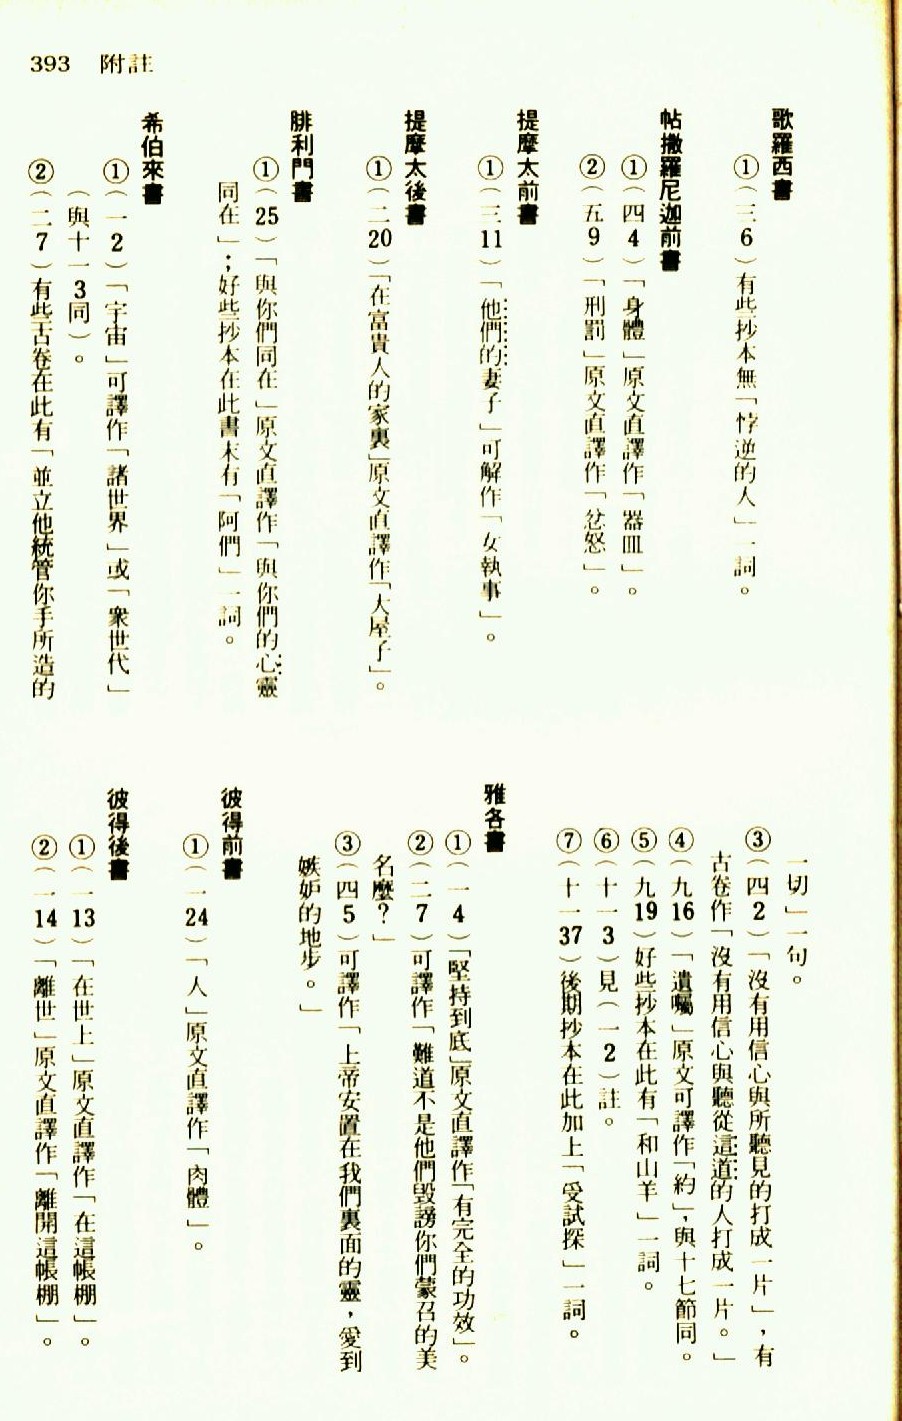 393 附註
歌羅西書
①（三6）有些抄本無「悖逆的人」一詞。
帖撒羅尼迦前書
①（四4）「身體」原文直譯作「器皿」。
②（五9）「刑罰」原文直譯作「忿怒」。
提摩太前書
①（三11）「他們的妻子」可解作「女執事」。
提摩太後書
①（二20）「在富貴人的家裏」原文直譯作「大屋子」。
腓利門書
①（25）「與你們同在」原文直譯作「與你們的心靈
同在」；好些抄本在此書末有「阿們」一詞。
希伯來書
①（一2）「宇宙」可譯作「諸世界」或「衆世代」
（與十一3同）。
②（二7）有些古卷在此有「並立他統管你手所造的
一切」一句。
③（四2）「沒有用信心與所聽見的打成一片」，有
古卷作「沒有用信心與聽從這道的人打成一片。」
④（九16）「遺囑」原文可譯作「約」，與十七節同。
⑤（九19）好些抄本在此有「和山羊」一詞。
⑥（十一3）見（一2）註。
⑦（十一37）後期抄本在此加上「受試探」一詞。
雅各書
①（一4）「堅持到底」原文直譯作「有完全的功效」。
②（二7）可譯作「難道不是他們毀謗你們蒙召的美
名麼？」
③（四5）可譯作「上帝安置在我們裏面的靈，愛到
嫉妒的地步。」
彼得前書
①（一24）「人」原文直譯作「肉體」。
彼得後書
①（一13）「在世上」原文直譯作「在這帳棚」。
②（一14）「離世」原文直譯作「離開這帳棚」。